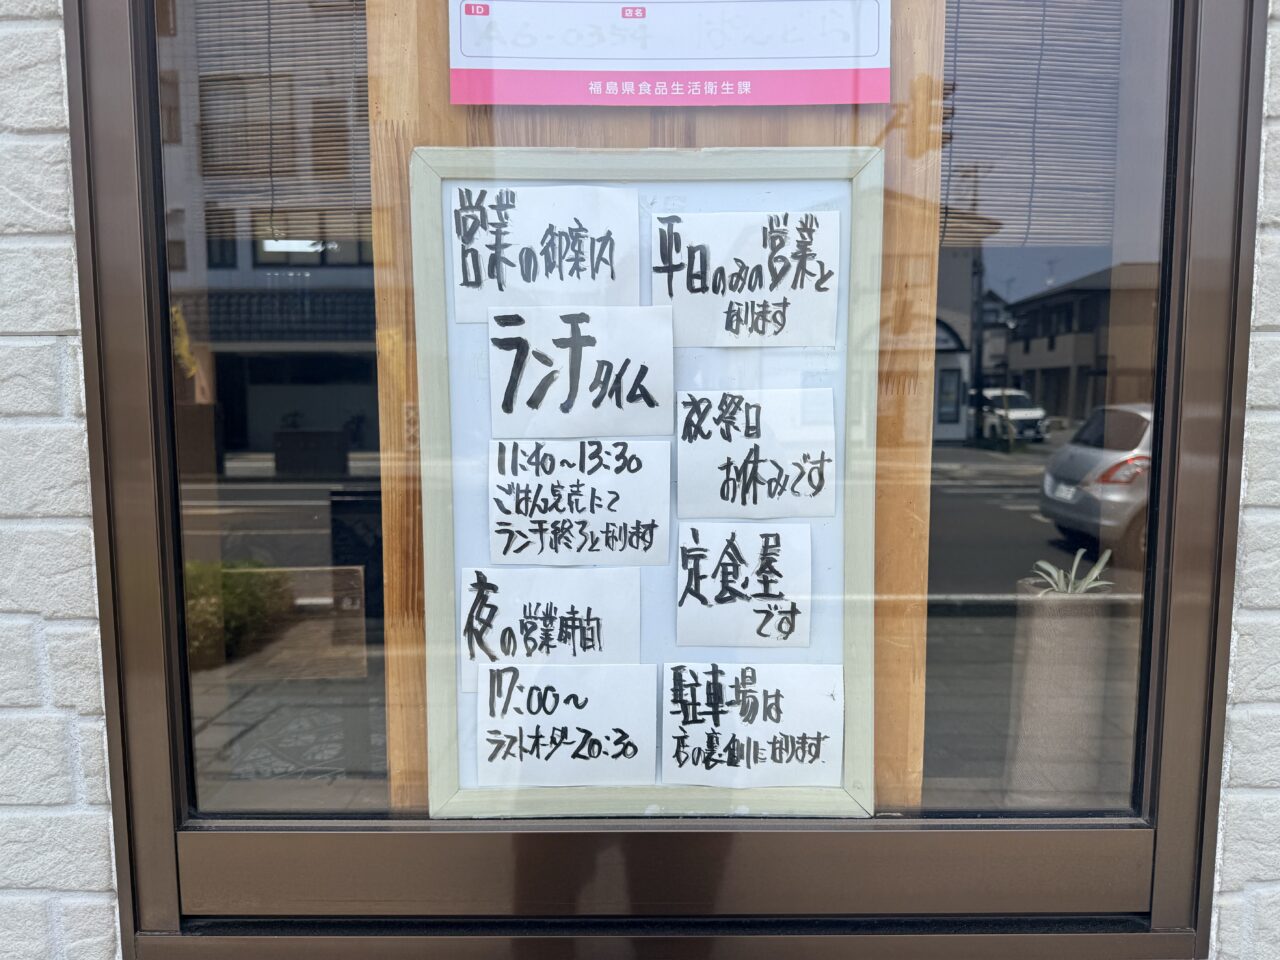 ID
店名
福島県食品生活衛生課
営業の御案内
ランチタイム
11:40〜13:30
ごはん完売にて
ランチ終了となります
夜の営業時間
17:00〜
ラストオーダー20:30
平日のみの営業と
なります
祝祭日
お休みです
定食屋
です
駐車場は
店の裏側になります